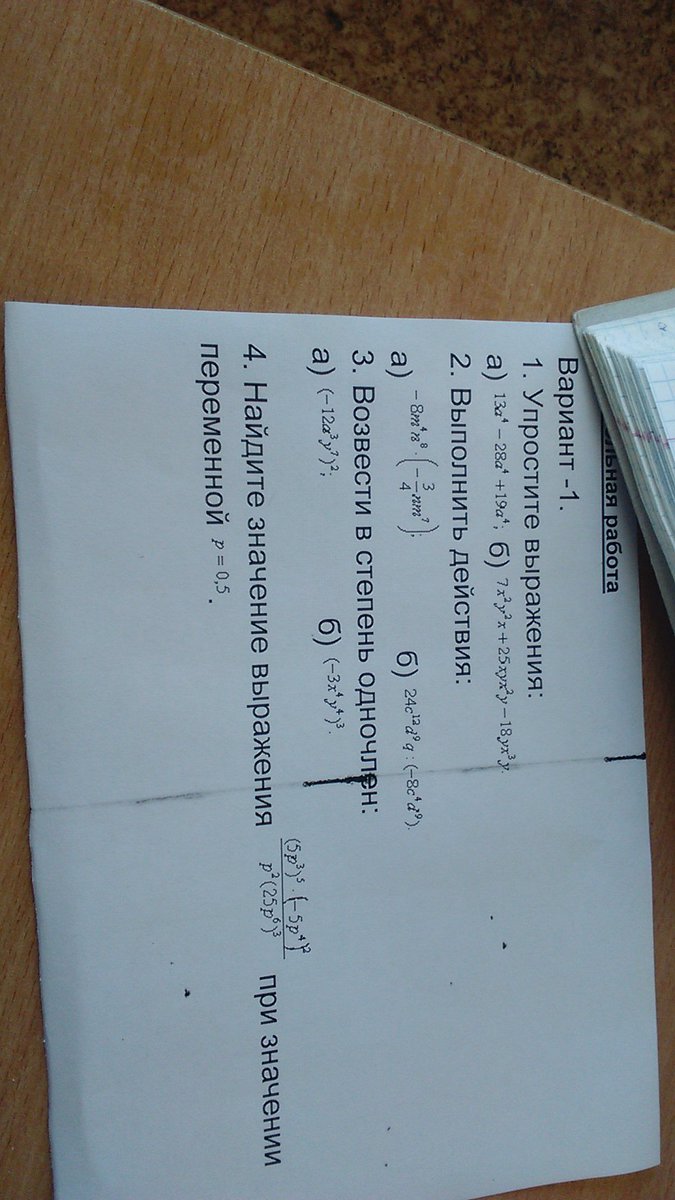 льная работа
Вариант -1.
1. Упростите выражения:
а) 13a⁴ − 28a⁴ + 19a⁴; б) 7x²y²x + 25xyx²y − 18yx³y.
2. Выполнить действия:
а) −8m⁴n⁸ · (−3/4 nm⁷); б) 24c¹²d⁹q : (−8c⁴d⁹).
3. Возвести в степень одночлен:
а) (−12a³y⁷)²; б) (−3x⁴y⁴)³.
4. Найдите значение выражения (5p³)⁵ · (−5p⁴)² / p²(25p⁶)³ при значении
переменной p = 0,5.